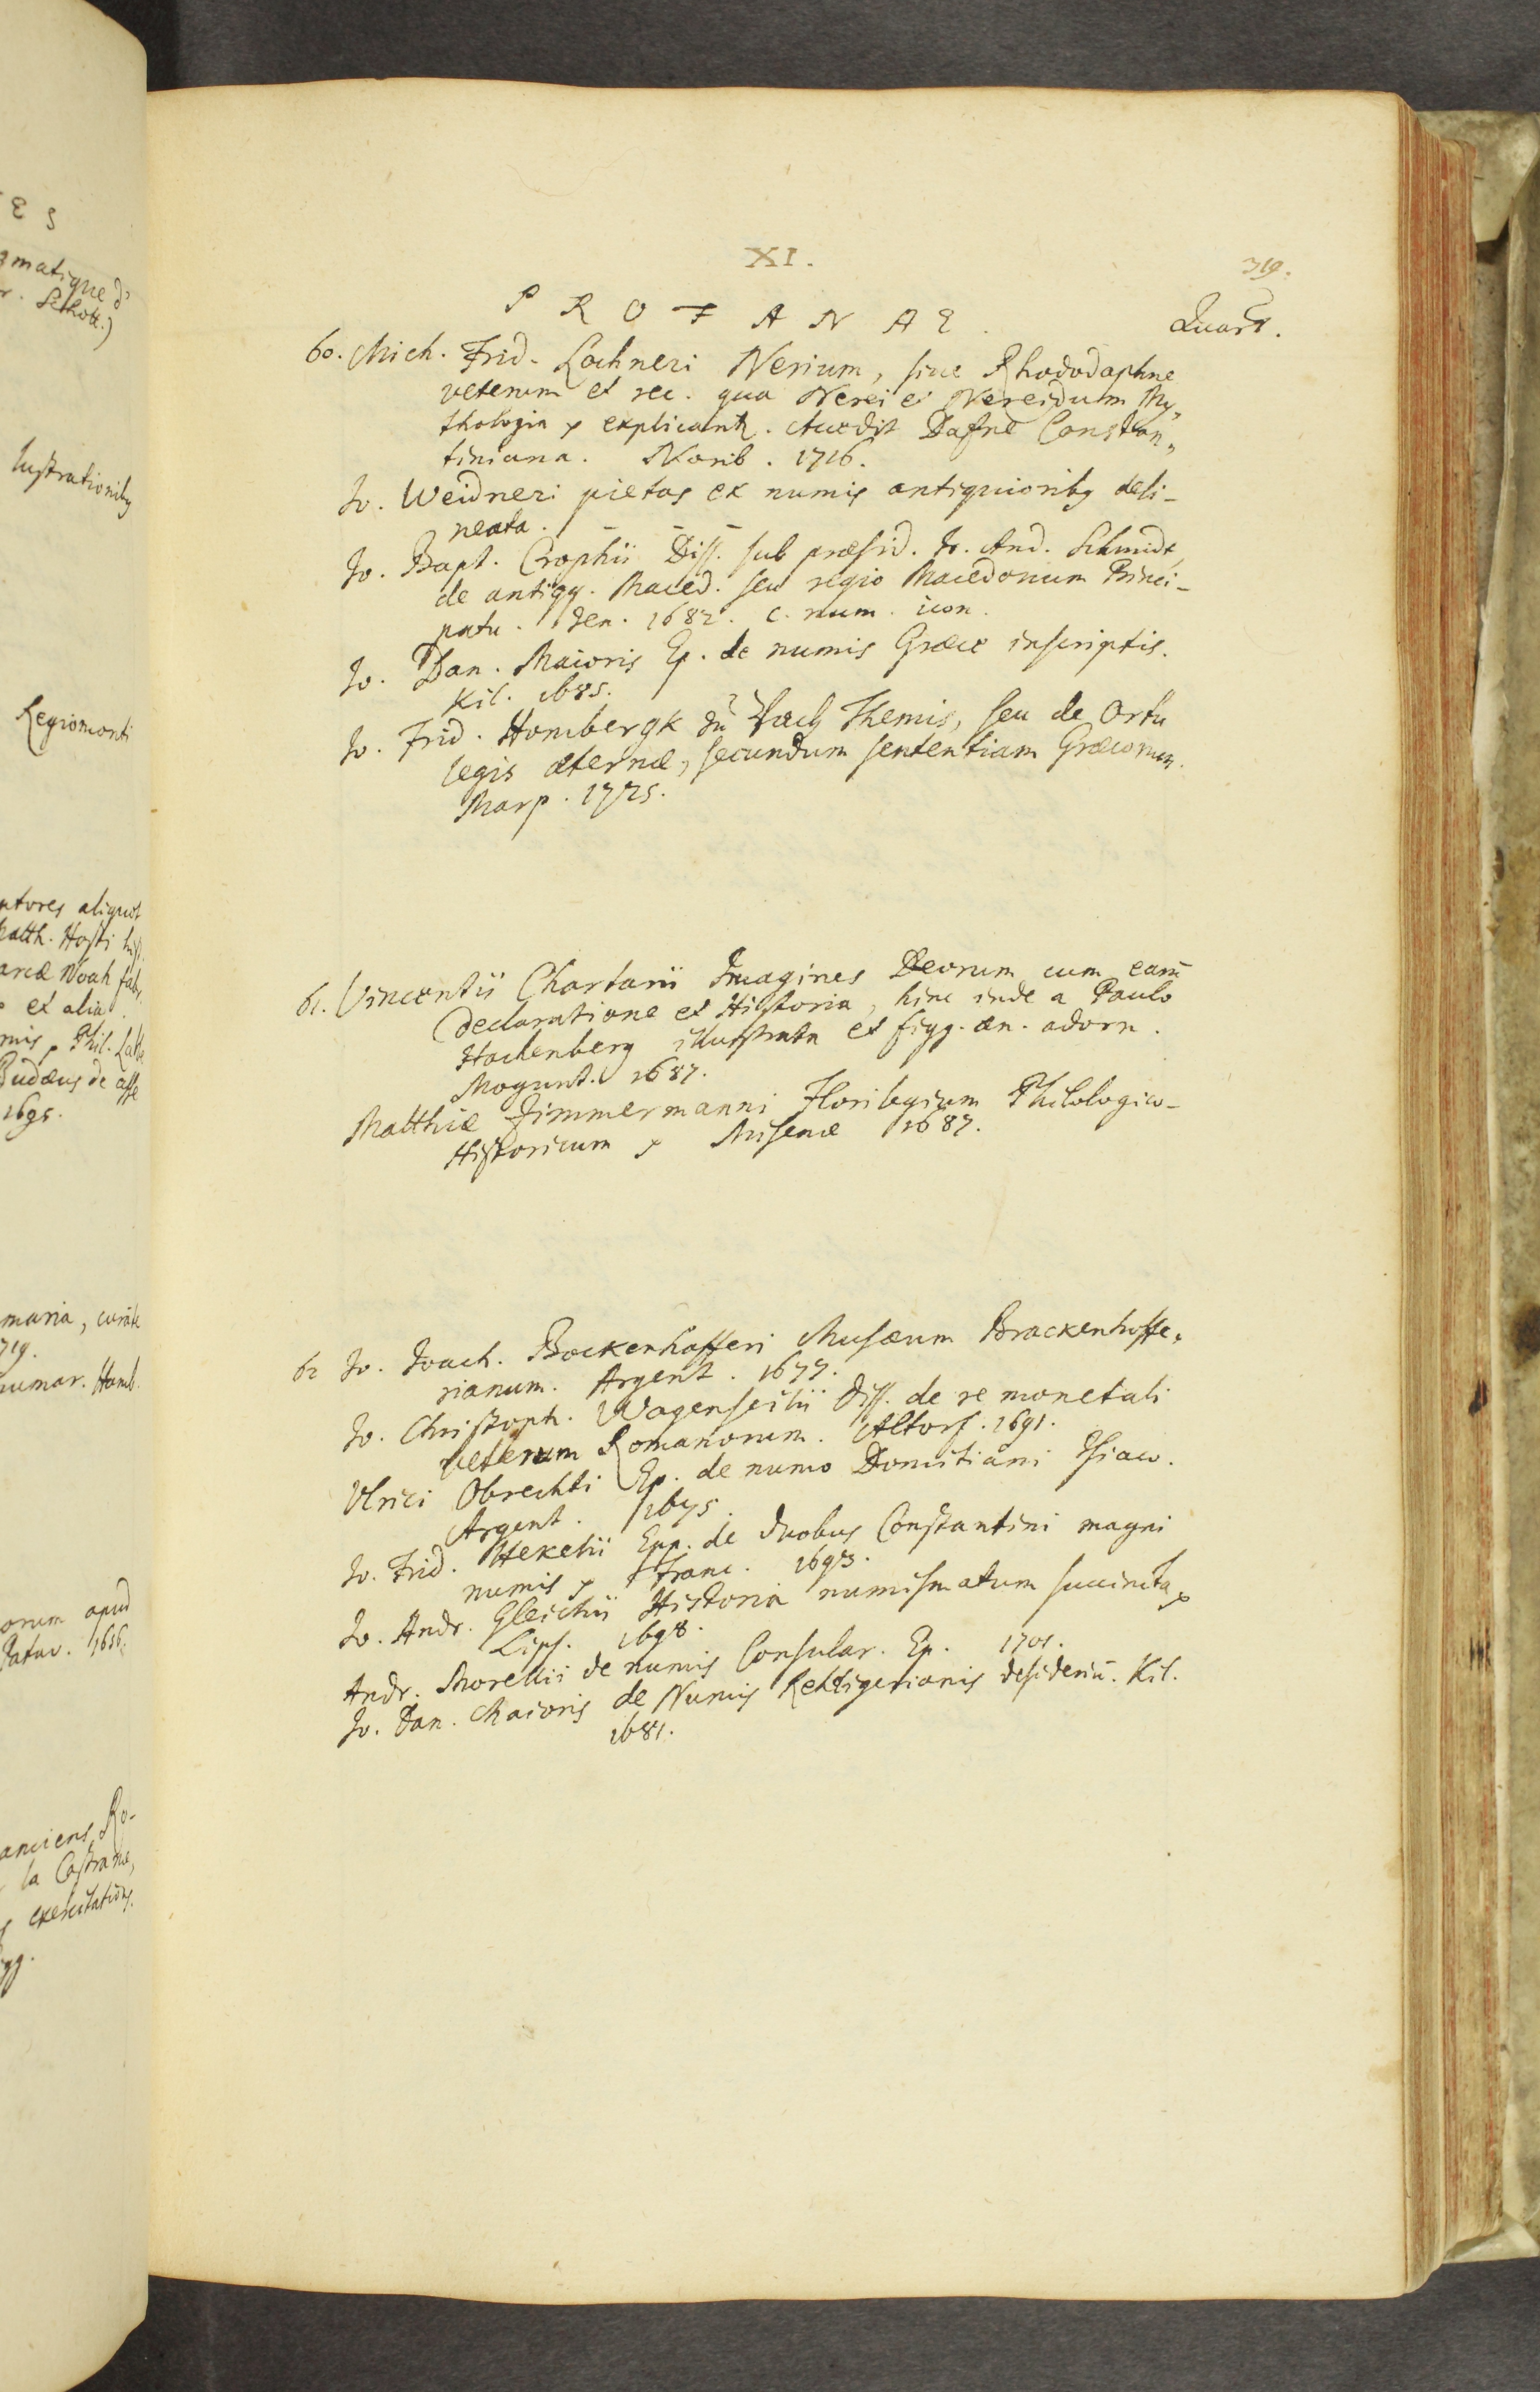 XI.
319.
PROFANAE.
Quart.
60. Mich. Frid. Lochneri Nerium, sive Rhododaphne
veterum et rec. qua Nerei et Nereidum My„
thologia explicant. Accedit Dafne Constan„
tiniana. Norib. 1716.
Jo. Weidneri pietas ex numis antiquiorib9 deli-
neata.
Jo. Bapt. Crophii Diss. sub præsid. Jo. And. Schmidt,
de antiqq. Maced. seu regio Macedonum Princi-
patu. Jen. 1682. c. num. icon.
Jo. Dan. Maioris Ep. de numis Græce inscriptis.
Kil. 1685.
Jo. Frid. Hombergk zu Vach Themis, seu de Ortu
legis æternæ, secundum sententiam Græcorum.
Marp. 1725.
61. Vincentii Chartarii Imagines Deorum cum earū
declaratione et Historia, hinc inde a Paulo
Hachenberg illustrata et figg. æn. adorn.
Mogunt. 1687.
Matthiæ Zimmermanni Florilegium Philologico-
Historicum Misenæ 1687.
62 Jo. Joach. Bockenhofferi Musæum Brackenhoffe„
rianum. Argent. 1677.
Jo. Christoph. Wagenseilii Diss. de re monetali
veterum Romanorum. Altorf. 1691.
Ulrici Obrechti Ep. de numo Domitiani Isiaco.
Argent. 1675.
Jo. Frid. Hekelii Epp. de duobus Constantini magni
numis Franc. 1693.
Jo. Andr. Gleichii Historia numismatum succincta
Lips. 1698.
Andr. Morellii de numis Consular. Ep. 1701.
Jo. Dan. Maioris de Numis Rehdigerianis desideriū. Kil.
1681.